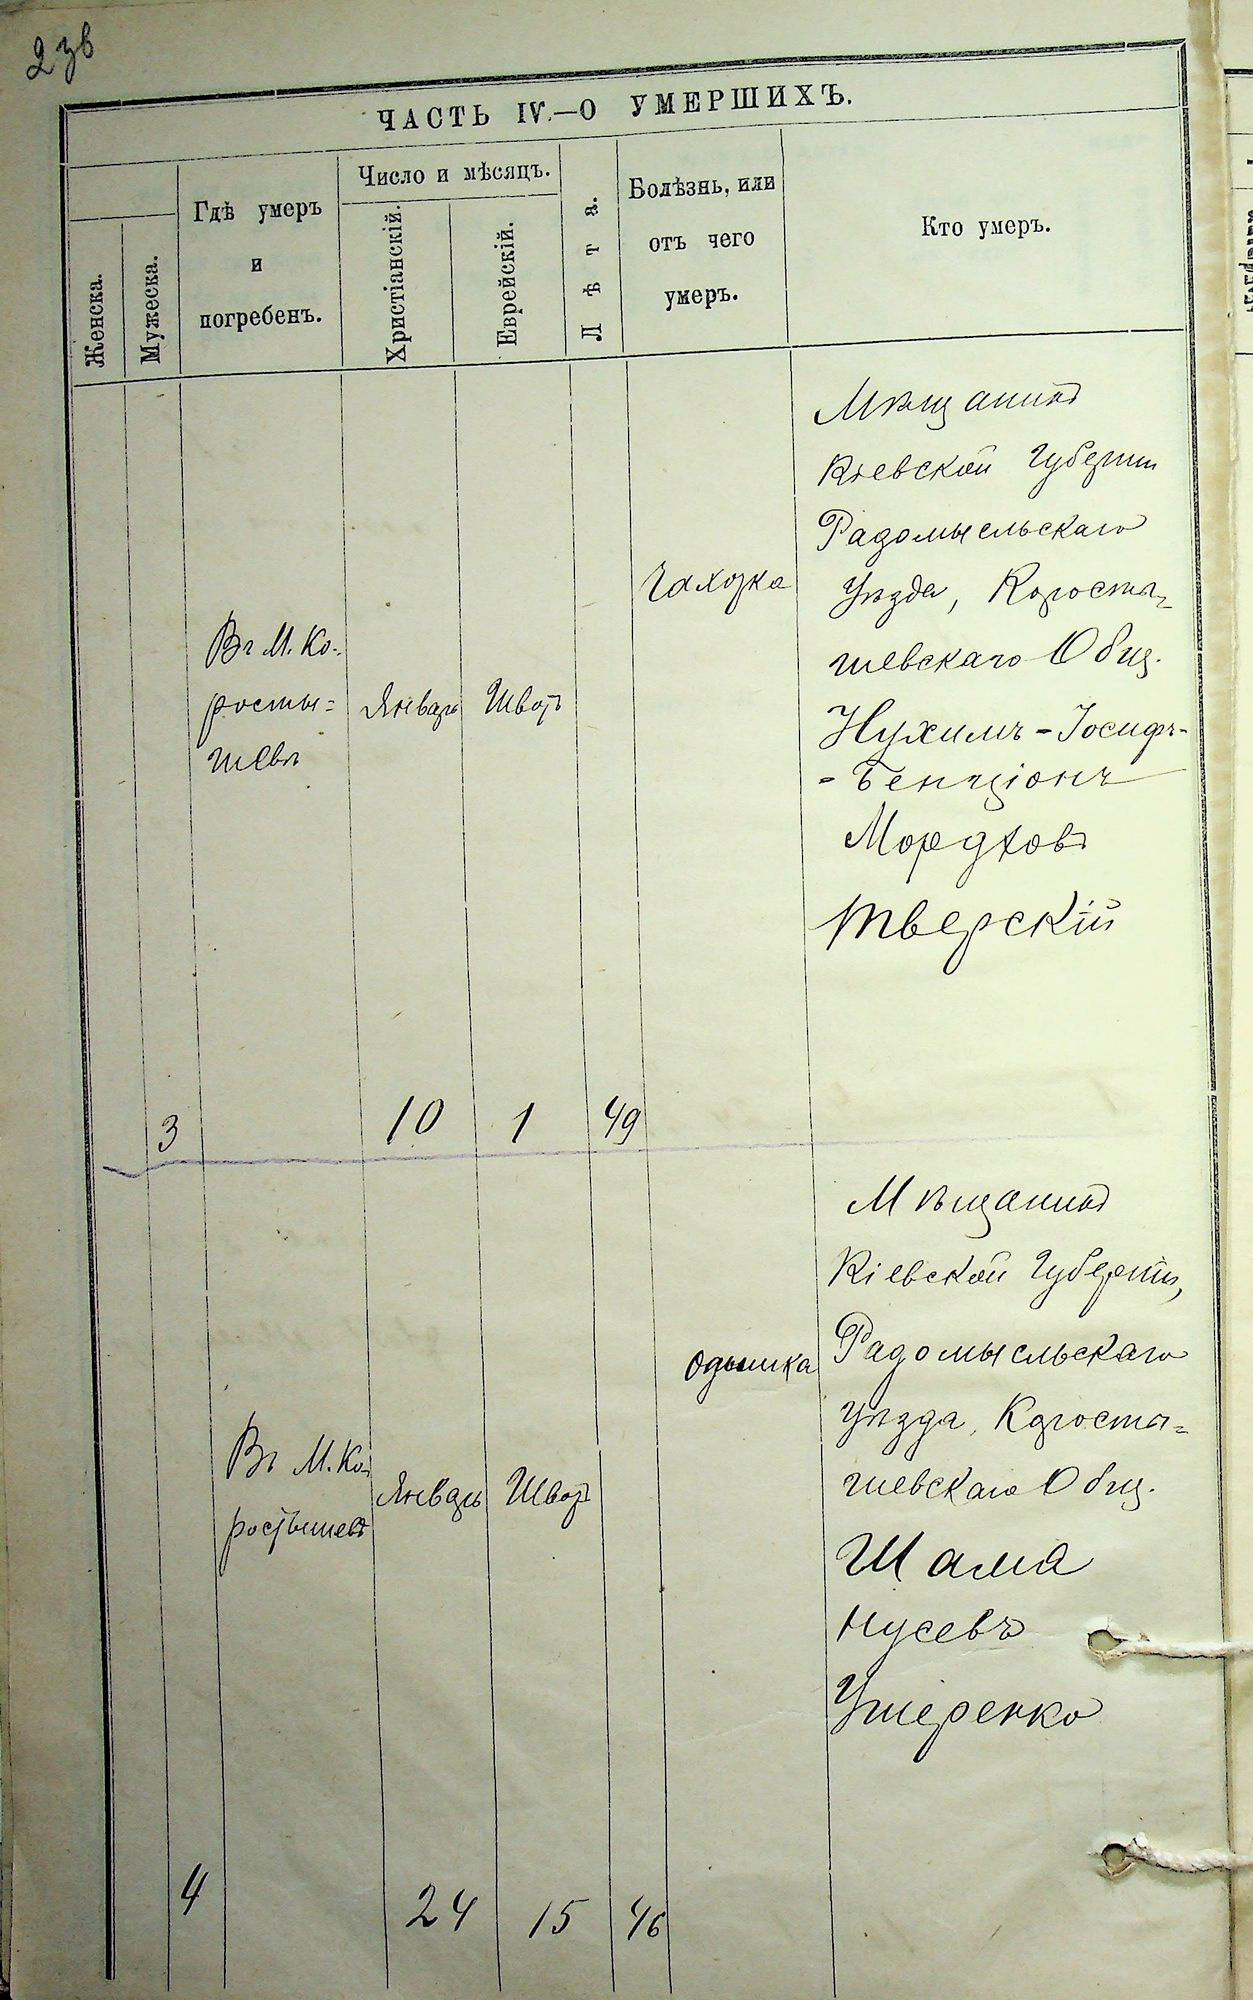 2 зв
ЧАСТЬ IV.—О УМЕРШИХЪ.
Женска.
Мужеска.
Гдѣ умеръ
и
погребенъ.
Число и мѣсяцъ.
Христіанскій.
Еврейскій.
Лѣта.
Болѣзнь, или
отъ чего
умеръ.
Кто умеръ.
3
Въ М. Ко-
росты=
шевѣ
Январь
10
Шватъ
1
49
Чахотка
Мѣщанинъ
Кіевской Губерніи
Радомысльскаго
Уѣзда, Коросты=
шевскаго Общ.
Нухимъ-Іосифъ-
-Бенціонъ
Мордховъ
Тверскій
4
Въ М. Ко-
ростышевѣ
Январь
24
Шватъ
15
46
Одышка
Мѣщанинъ
Кіевской Губерніи,
Радомысльскаго
Уѣзда, Коросты=
шевскаго Общ.
Шама
Нусевъ
Ушеренко